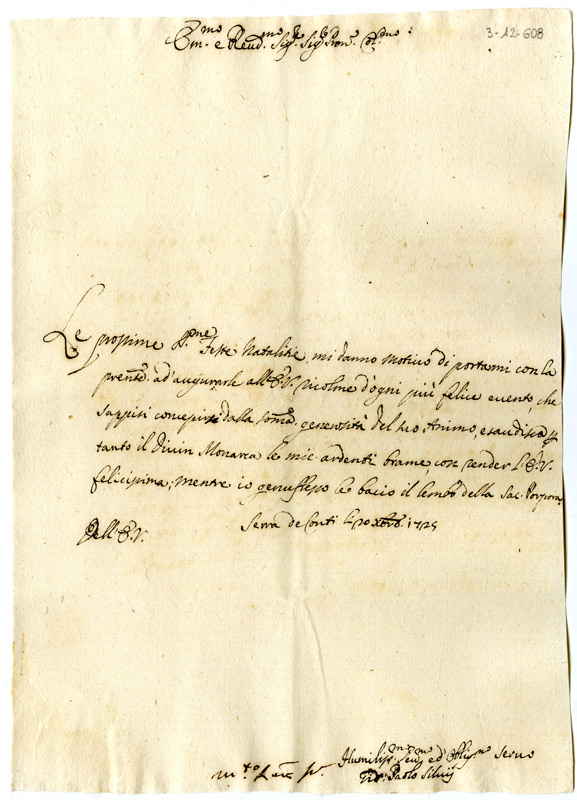 3-12-608
Em.mo e Rev.mo Sig.r Sig.r Pron.e Col.mo
Le prossime S.me Feste Natalitie mi danno motivo di portarmi con la
pnte ad'augurarle all'E.V. ricolme d'ogni più felice evento, che
sappisi concepire dalla somma generosità del suo Animo, esaudisca p
tanto il Divin Monarca le mie ardenti brame, con render l'E.V.
felicissima, mentre io genuflesso le bacio il lembo della Sac. Porpora
Dell'E.V. Serra de Conti li 20 Xbre 1725
Humiliss.mo Dev.mo ed Obblig.mo Servo
Paolo Silvij